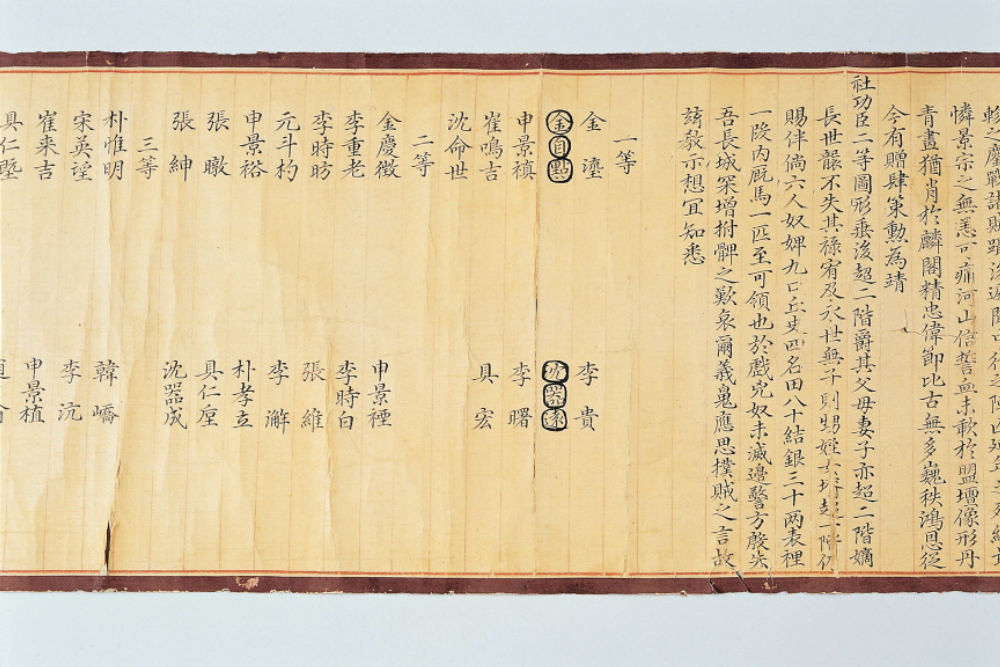 憐景宗之無恙可痛河山信誓血未歃於盟壇像形丹
青畫猶肖於麟閣精忠偉節比古無多巍秩鴻恩從
今有贈肆策勳為靖
社功臣二等圖形垂後超二階爵其父母妻子亦超二階嫡
長世襲不失其祿宥及永世無子則甥姪女壻超一階仍
賜伴倘六人奴婢九口丘史四名田八十結銀三十两表裡
一段內厩馬一匹至可領也於戲兇奴未滅邊警方殷失
吾長城罙增拊髀之歎哀爾義鬼應思撲賊之言故
玆敎示想宜知悉
一等
金瑬 李貴
金自點 沈器遠
申景禛 李曙
崔鳴吉 具宏
沈命世
二等
金慶徵 申景禋
李重老 李時白
李時昉 張維
元斗杓 李澥
申景裕 朴孝立
張暾 具仁垕
張紳 沈器成
三等
朴惟明 韓嶠
宋英望 李沆
崔来吉 申景植
具仁墍